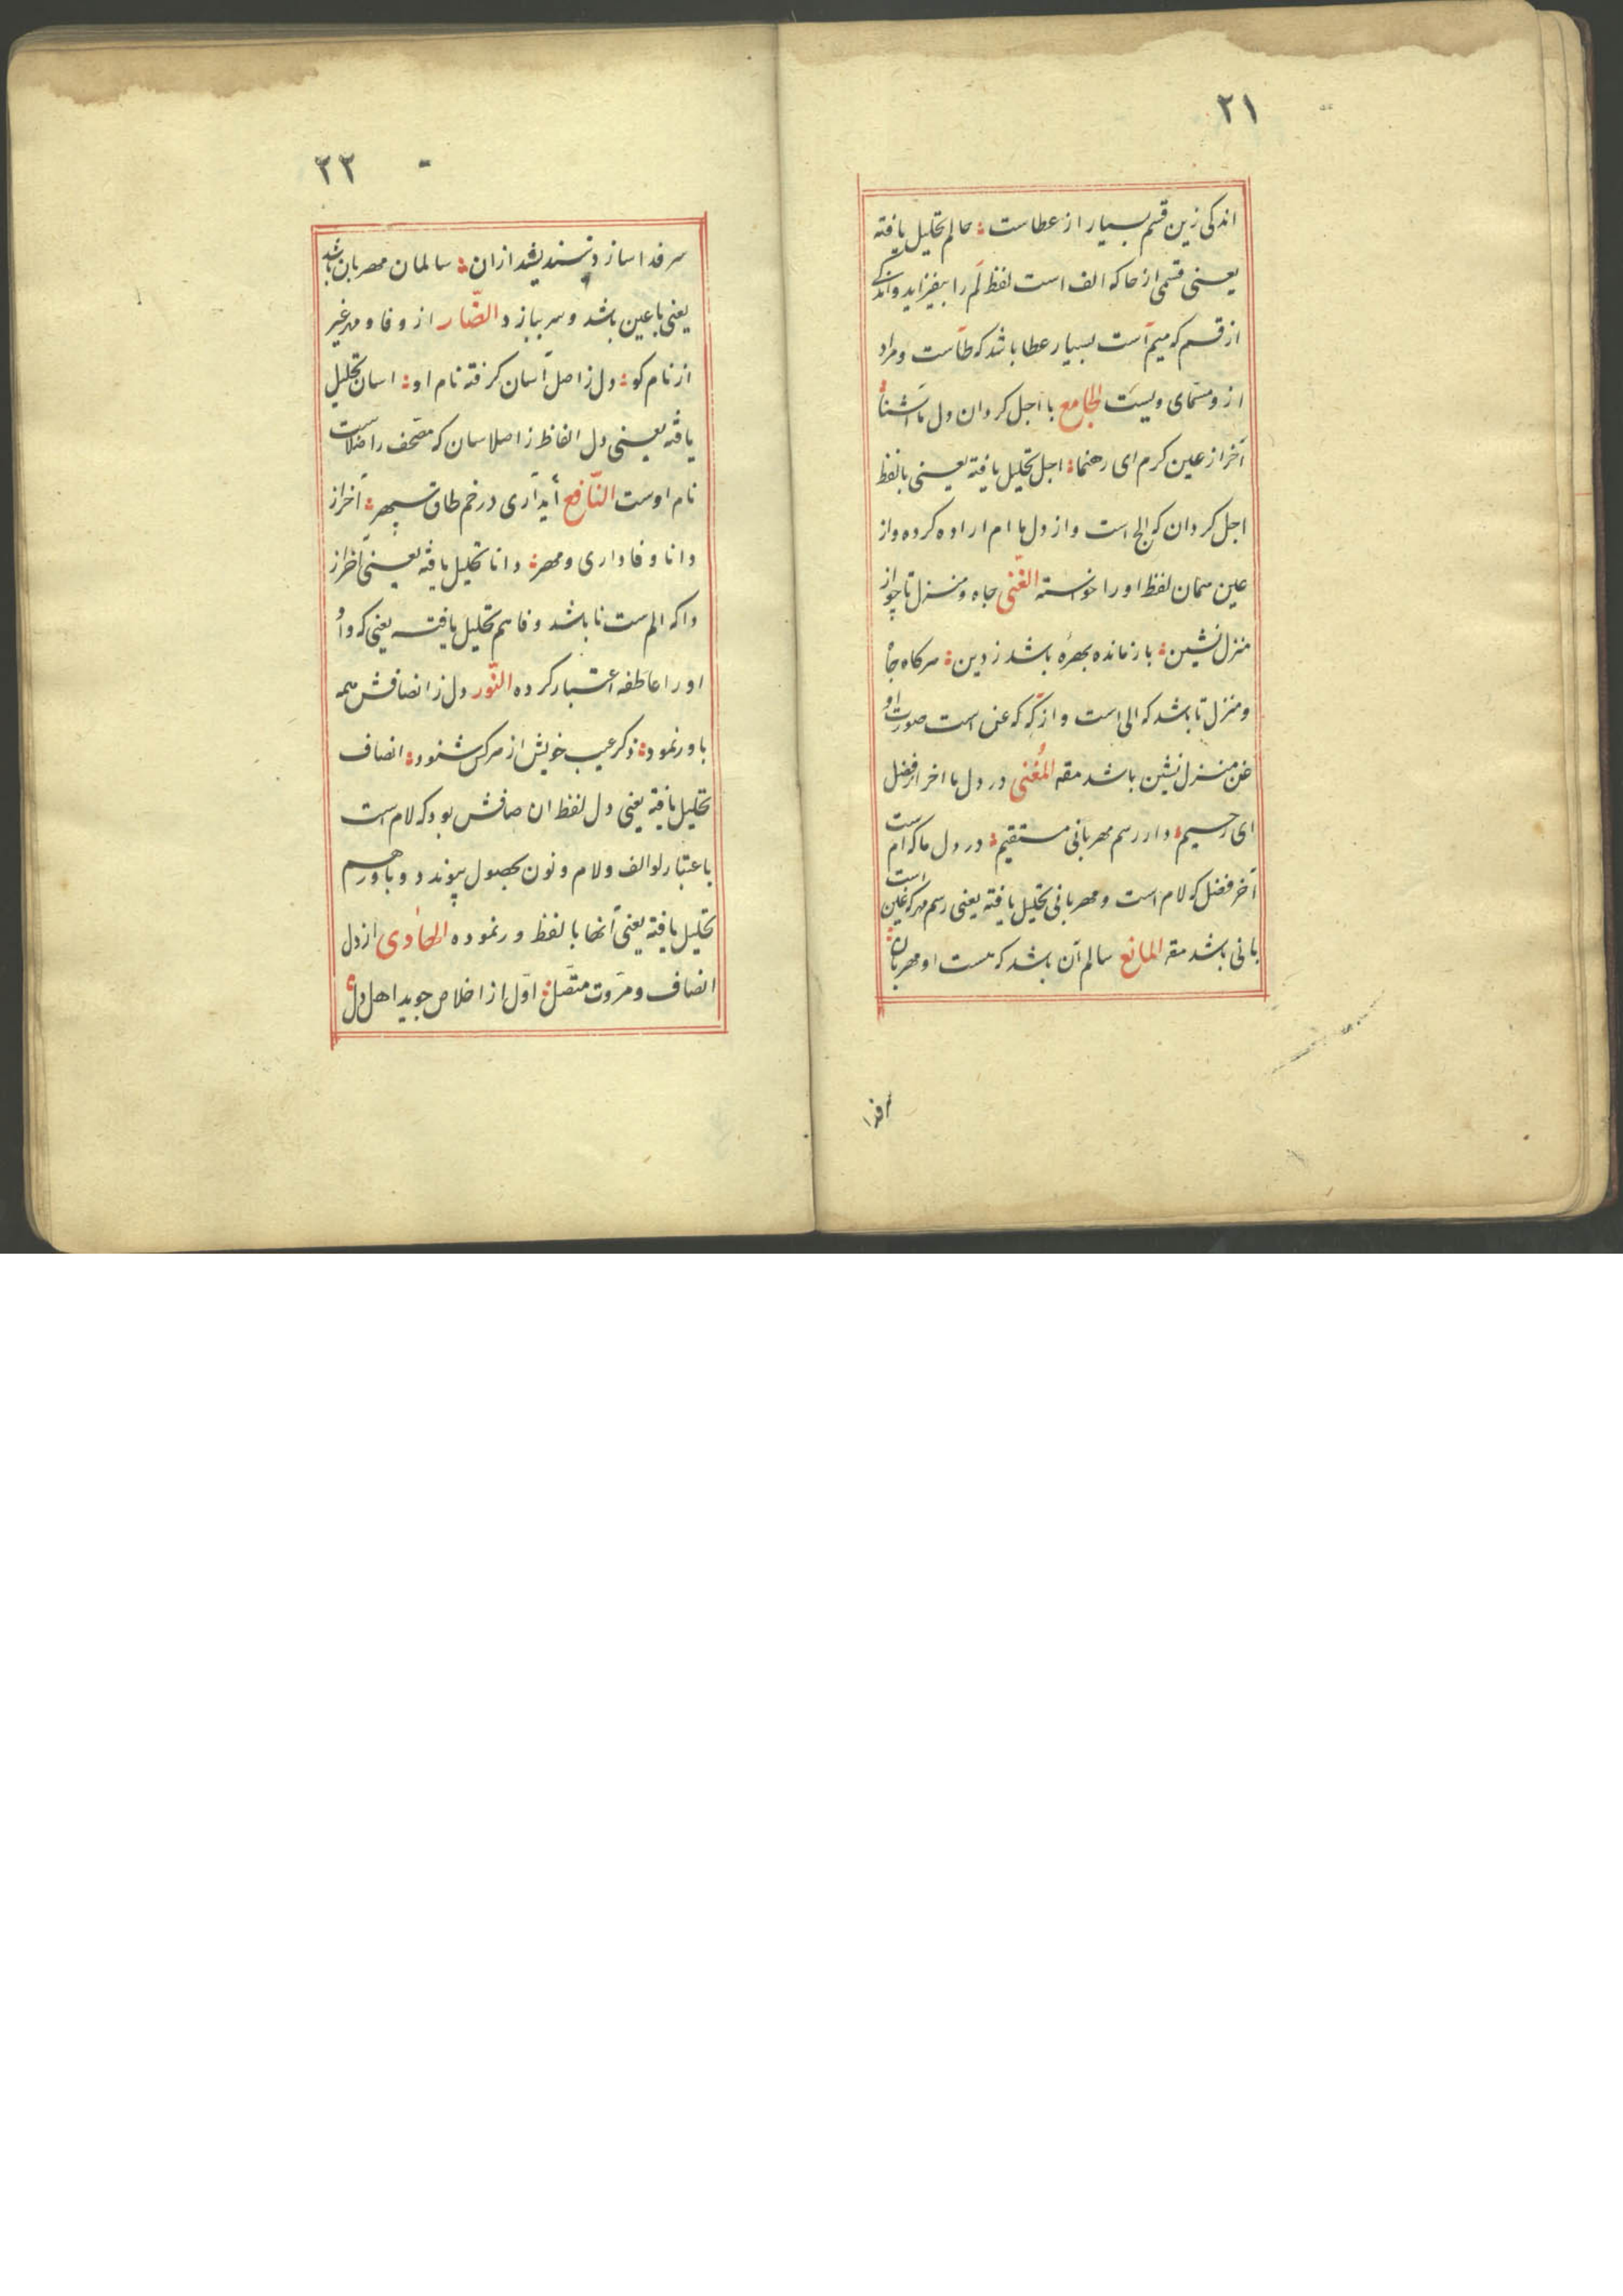 ۲۱
اندکی زین قسم بسیار از عطاست ؛ حالم تحلیل یافته
یعنی قسمی از حا که الف است لفظ لم را بیفزاید و اندکی
از قسم که میم است بسیار عطا باشد که طاست و مراد
از و مسمای ویست الجامع با اجل کردان دل ما آشنا
آخر از عین کرم ای رهنما ؛ اجل تحلیل یافته یعنی با لفظ
اجل کردان که الج است و از دل ما ام اراده کرده و از
عین همان لفظ او را خواسته الغنی جاه و منزل تا چو از
منزل نشین ؛ باز مانده بهره باشد ز دین ؛ هر کاه جاه
و منزل تا باشد که الی است و از که که عن است صورت او
غن منزل نشین باشد مقه المغنی در دل ما اخر از فضل
ای رحیم ؛ دار رسم مهربانی مستقیم ؛ در دل ما که ام است
آخر فضل که لام است و مهربانی تحلیل یافته یعنی رسم مهر که غین است
بانی باشد مقه المانع سالم آن باشد که هست او مهربان ؛
سرفدا
۲۲
سر فدا سازد نیندیشد از ان ؛ سالمان مهربان باشد
یعنی با عین باشد و سر ببازد الضار از وفا و مهر غیر
از نام کو ؛ دل ز اصل آسان کرفته نام او ؛ اسان تحلیل
یافته یعنی دل الفاظ ز اصلا سان که مصحف راضلاست
نام اوست النافع آید آری در خم طاق سپهر ؛ آخر از
دانا وفاداری و مهر ؛ دانا تحلیل یافته یعنی آخر از
دا که الم ست نا باشد وفا هم تحلیل یافته یعنی که واو
او را عاطفه اعتبار کرده النور دل ز انصافش همه
باور نمود ؛ ذکر عیب خویش از هر کس شنود ؛ انصاف
تحلیل یافته یعنی دل لفظ ان صافش بود که لام است
باعتبار لو الف و لام و نون بحصول پیوندد و باور هم
تحلیل یافته یعنی آنها با لفظ ور نموده الهادی از دل
انصاف و مروت متصل ؛ اول از اخلاص جوید اهل دل ؛